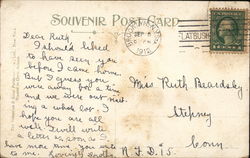 SOUVENIR POST CARD
1912
FLATBUSH
Dear Ruth
I should liked
to have seen you
before I came home.
But I guess you
were away for a time
and we were out visit-
ing a whole lot. I
hope you are all
well. I will write
a letter as soon as I
have more time. you write
to me. Loving
Miss Ruth Beardsley
Stepney
Conn
R.F.D. #15